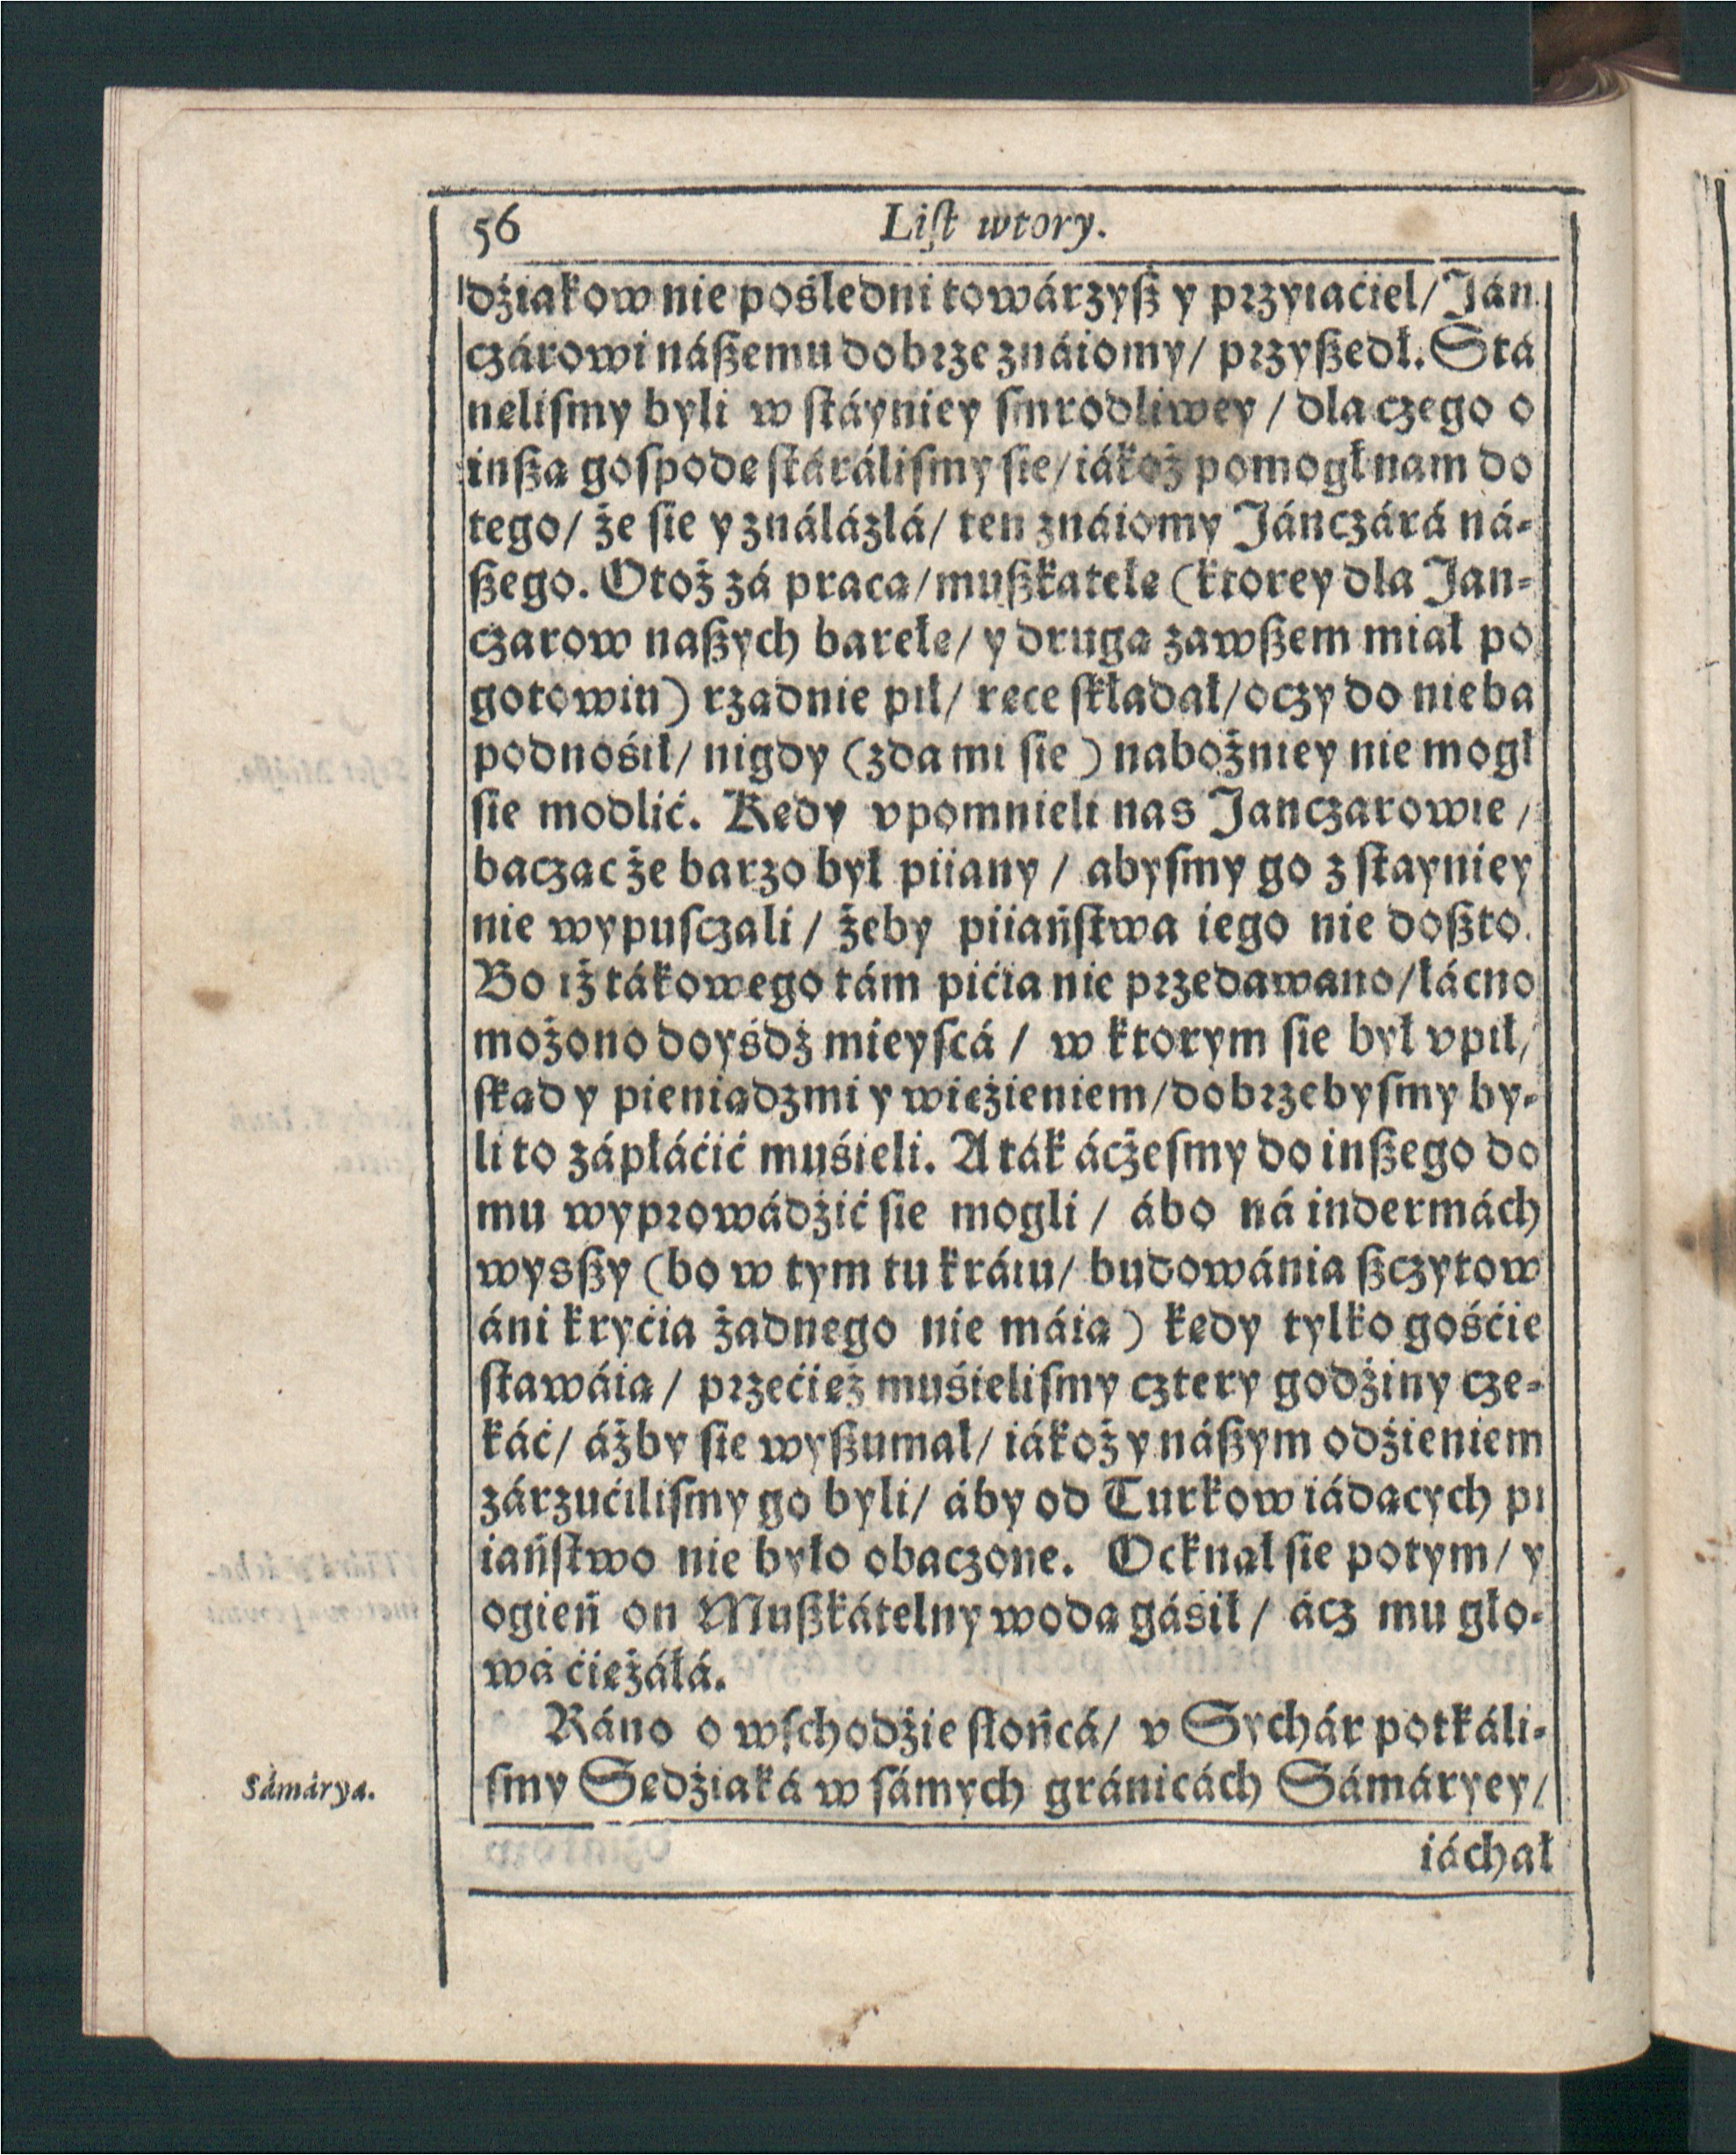 56 Liſt wtory.
dźiakow nie pośledni towárzyß y przyiaćiel/ Ján
czárowi náßemu dobrze znáiomy/ przyßedł. Stá
nęliſmy byli w ſtáyniey ſmrodliwey / dla czego o
inßą goſpodę ſtáráliſmy ſie/ iákoż pomogł nam do
tego/ że ſie y ználázłá/ ten znáiomy Jánczárá ná-
ßego. Otoż zá pracą/ mußkatełę (ktorey dla Jan-
czarow naßych barełę/ y drugą zawßem miał po
gotowiu) rządnie pił/ ręce ſkładał/ oczy do nieba
podnośił/ nigdy (zda mi ſie) nabożniey nie mogł
ſie modlić. Kędy vpomnieli nas Janczarowie /
bacząc że barzo był piiany / abyſmy go z ſtayniey
nie wypuſczali / żeby piiańſtwa iego nie doßło.
Bo iż tákowego tám pićia nie przedawano/ łácno
możono doyśdź mieyſcá / w ktorym ſie był vpił/
ſkąd y pieniądzmi y więźieniem/ dobrzebyſmy by-
li to zápłáćić muśieli. A ták áczeſmy do inßego do
mu wyprowádźić ſie mogli / ábo ná indermách
wysßy (bo w tym tu kráiu/ budowánia ßczytow
áni kryćia żadnego nie máią) kędy tylko gośćie
ſtawáią / przećięż muśieliſmy cztery godźiny cze-
káć/ áżby ſie wyßumał/ iákoż y náßym odźieniem
zárzućiliſmy go byli/ áby od Turkow iádących pi
iańſtwo nie było obaczone. Ocknął ſie potym/ y
ogień on Mußkátelny wodą gáśił / ácz mu gło-
wá ćiężáłá.
Ráno o wſchodźie ſłońcá/ v Sychár potkáli-
ſmy Sędźiaká w ſámych gránicách Sámáryey/
Sámárya.
iáchał